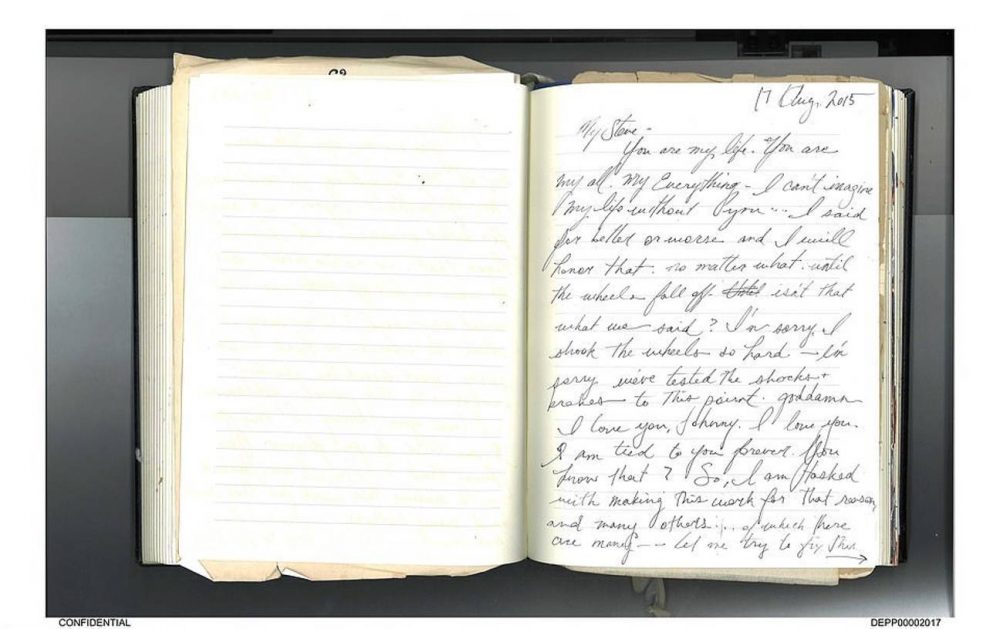 17 Aug. 2015
My Steve -
You are my life. You are
my all. My Everything - I can't imagine
my life without you... I said
for better or worse and I will
honor that. no matter what. until
the wheels fall off. isn't that
what we said? I'm sorry I
shook the wheels so hard — I'm
sorry we've tested the shocks +
brakes to this point. goddamn
I love you, Johnny. I love you.
I am tied to you forever. You
know that? So, I am tasked
with making this work for that reason,
and many others... of which there
are many -- Let me try to fix this
→
CONFIDENTIAL
DEPP00002017